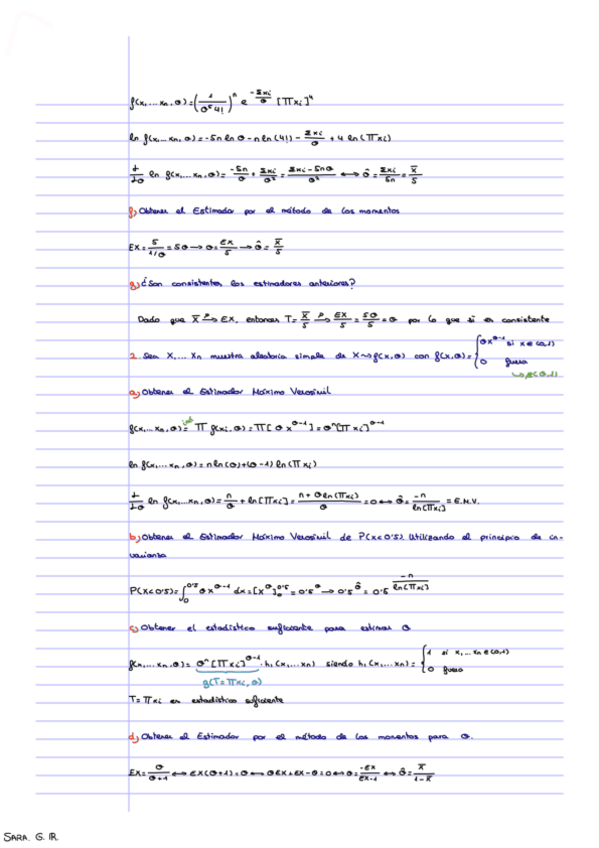 f(x₁...xₙ,θ)=(1/θ⁵4!)ⁿ e^(-Σxi/θ) [∏xi]⁴
ln f(x₁...xₙ,θ)=-5n ln θ - n ln(4!) - Σxi/θ + 4 ln(∏xi)
d/dθ ln f(x₁...xₙ,θ)= -5n/θ + Σxi/θ² = Σxi-5nθ/θ² ⟷ θ̂ = Σxi/5n = x̄/5
f) Obtener el Estimador por el método de los momentos
EX = 5/(1/θ) = 5θ → θ = EX/5 → θ̂ = x̄/5
g) ¿Son consistentes los estimadores anteriores?
Dado que X̄ →ᴾ EX, entonces T = X̄/5 →ᴾ EX/5 = 5θ/5 = θ por lo que sí es consistente
2. Sea X₁...Xₙ muestra aleatoria simple de X~f(x,θ) con f(x,θ)= { θx^(θ-1) si x∈(0,1)
0 fuera
↳ β(θ,1)
a) Obtener el Estimador Máximo Verosímil
f(x₁...xₙ,θ) =^ind ∏ f(xi,θ) = ∏[θ x^(θ-1)] = θⁿ[∏xi]^(θ-1)
ln f(x₁...xₙ,θ) = n ln(θ)+(θ-1) ln(∏xi)
d/dθ ln f(x₁...xₙ,θ) = n/θ + ln[∏xi] = n+θ ln(∏xi)/θ = 0 ⟷ θ̂ = -n/ln[∏xi] = E.M.V.
b) Obtener el Estimador Máximo Verosímil de P(X<0'5). Utilizando el principio de in-
varianza
P(X<0'5) = ∫₀^0'5 θx^(θ-1) dx = [x^θ]₀^0'5 = 0'5^θ → 0'5^θ̂ = 0'5^(-n/ln[∏xi])
c) Obtener el estadístico suficiente para estimar θ
f(x₁...xₙ,θ) = θⁿ[∏xi]^(θ-1) · h₁(x₁...xn) siendo h₁(x₁...xn) = { 1 si x₁...xn∈(0,1)
0 fuera
g(T=∏xi,θ)
T=∏xi es estadístico suficiente
d) Obtener el Estimador por el método de los momentos para θ.
EX = θ/θ+1 ⟷ EX(θ+1)=θ ⟷ θEX+EX-θ=0 ⟷ θ = -EX/EX-1 ⟷ θ̂ = X̄/1-X̄
SARA. G. R.